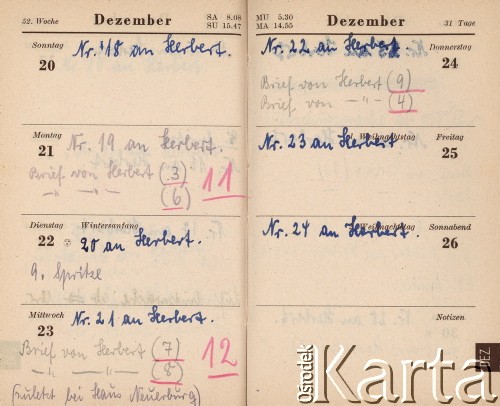 52. Woche
Dezember
SA 8.08
SU 15.47
Sonntag
20
Nr. 18 an Herbert.
Montag
21
Nr. 19 an Herbert.
Brief von Herbert (3)
— " — " — (6)
11
Dienstag
22
Wintersanfang
20 an Herbert.
9. Spritze
Mittwoch
23
Nr. 21 an Herbert.
Brief von Herbert (7)
— " — " — (8)
12
(zuletzt bei Haus Neuerburg)
MU 5.30
MA 14.55
Dezember
31 Tage
Donnerstag
24
Nr. 22 an Herbert.
Brief von Herbert (9)
Brief von — " — (4)
1. Weihnachtstag
Freitag
25
Nr. 23 an Herbert.
Weihnachtstag
Sonnabend
26
Nr. 24 an Herbert.
Notizen
DEZ
Ośrodek
Karta